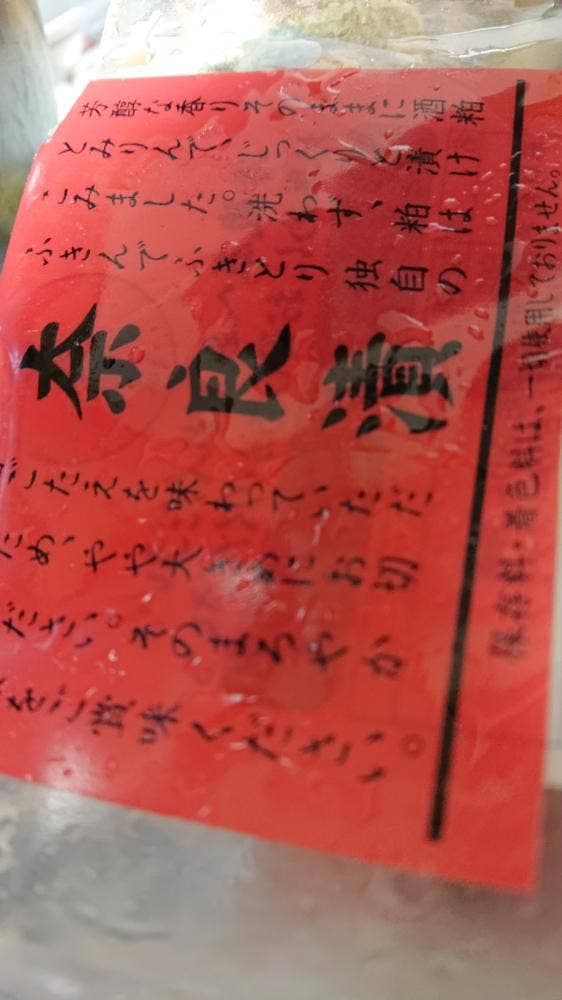 芳醇な香りそのままに酒粕
とみりんで、じっくりと漬け
こみました。洗わず、粕は
ふきんでふきとり独自の
奈良漬
ごたえを味わっていただ
ため、やや大きめにお切
ださい。そのまろやか
をご賞味ください。
保存料・着色料は、一切使用しておりません。